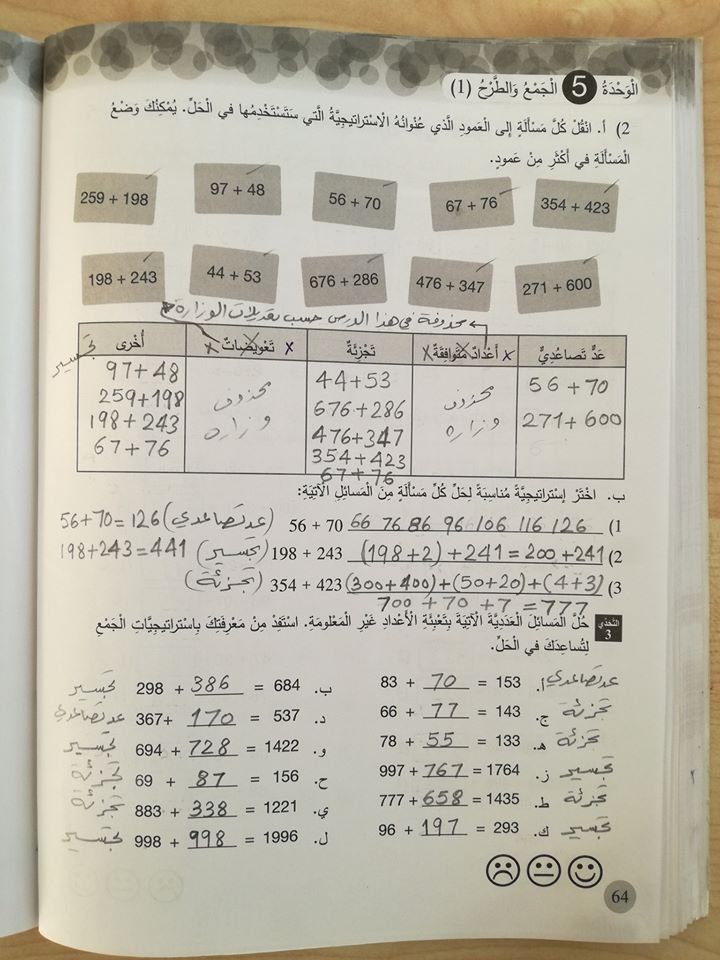 الْوَحْدَةُ 5 الْجَمْعُ وَالطَّرْحُ (1)
2) أ. انْقُلْ كُلَّ مَسْأَلَةٍ إِلَى الْعَمودِ الَّذي عُنْوانُهُ الْاسْتراتيجِيَّةُ الَّتي سَتَسْتَخْدِمُها في الْحَلِّ. يُمْكِنُكَ وَضْعُ
الْمَسْأَلَةِ في أَكْثَرِ مِنْ عَمودٍ.
354 + 423 67 + 76 56 + 70 97 + 48 259 + 198
271 + 600 476 + 347 676 + 286 44 + 53 198 + 243
محذوفة في هذا الدرس حسب تعديلات الوزارة
عَدٌّ تَصاعُدِيٌّ x أَعْدادٌ مُتَوافِقَةٌ x تَجْزِئَةٌ x تَعْويضاتٌ x أُخْرى تجسير
56 + 70 محذوف 44 + 53 محذوف 97 + 48
271 + 600 وزارة 676 + 286 وزارة 259 + 198
476 + 347 198 + 243
354 + 423 67 + 76
67 + 76
ب. اخْتَرْ إِسْتراتيجِيَّةً مُناسِبَةً لِحَلِّ كُلِّ مَسْأَلَةٍ مِنَ الْمَسائِلِ الْآتِيَةِ:
1) 56 + 70 66 76 86 96 106 116 126 (عد تصاعدي) 56 + 70 = 126
2) 198 + 243 (198 + 2) + 241 = 200 + 241 (تجسير) 198 + 243 = 441
3) 354 + 423 (300 + 400) + (50 + 20) + (4 + 3) (تجزئة)
700 + 70 + 7 = 777
التَّحَدّي 3 حُلَّ الْمَسائِلَ الْعَدَدِيَّةَ الْآتِيَةَ بِتَعْبِئَةِ الْأَعْدادِ غَيْرِ الْمَعْلومَةِ. اسْتَفِدْ مِنْ مَعْرِفَتِكَ بِاسْتراتيجِيَّاتِ الْجَمْعِ
لِتُساعِدَكَ في الْحَلِّ.
عد تصاعدي أ. 83 + 70 = 153 ب. 298 + 386 = 684 تجسير
تجزئة ج. 66 + 77 = 143 د. 367 + 170 = 537 عد تصاعدي
تجزئة هـ. 78 + 55 = 133 و. 694 + 728 = 1422 تجسير
تجسير ز. 997 + 767 = 1764 ح. 69 + 87 = 156 تجزئة
تجزئة ط. 777 + 658 = 1435 ي. 883 + 338 = 1221 تجزئة
تجسير ك. 96 + 197 = 293 ل. 998 + 998 = 1996 تجسير
64